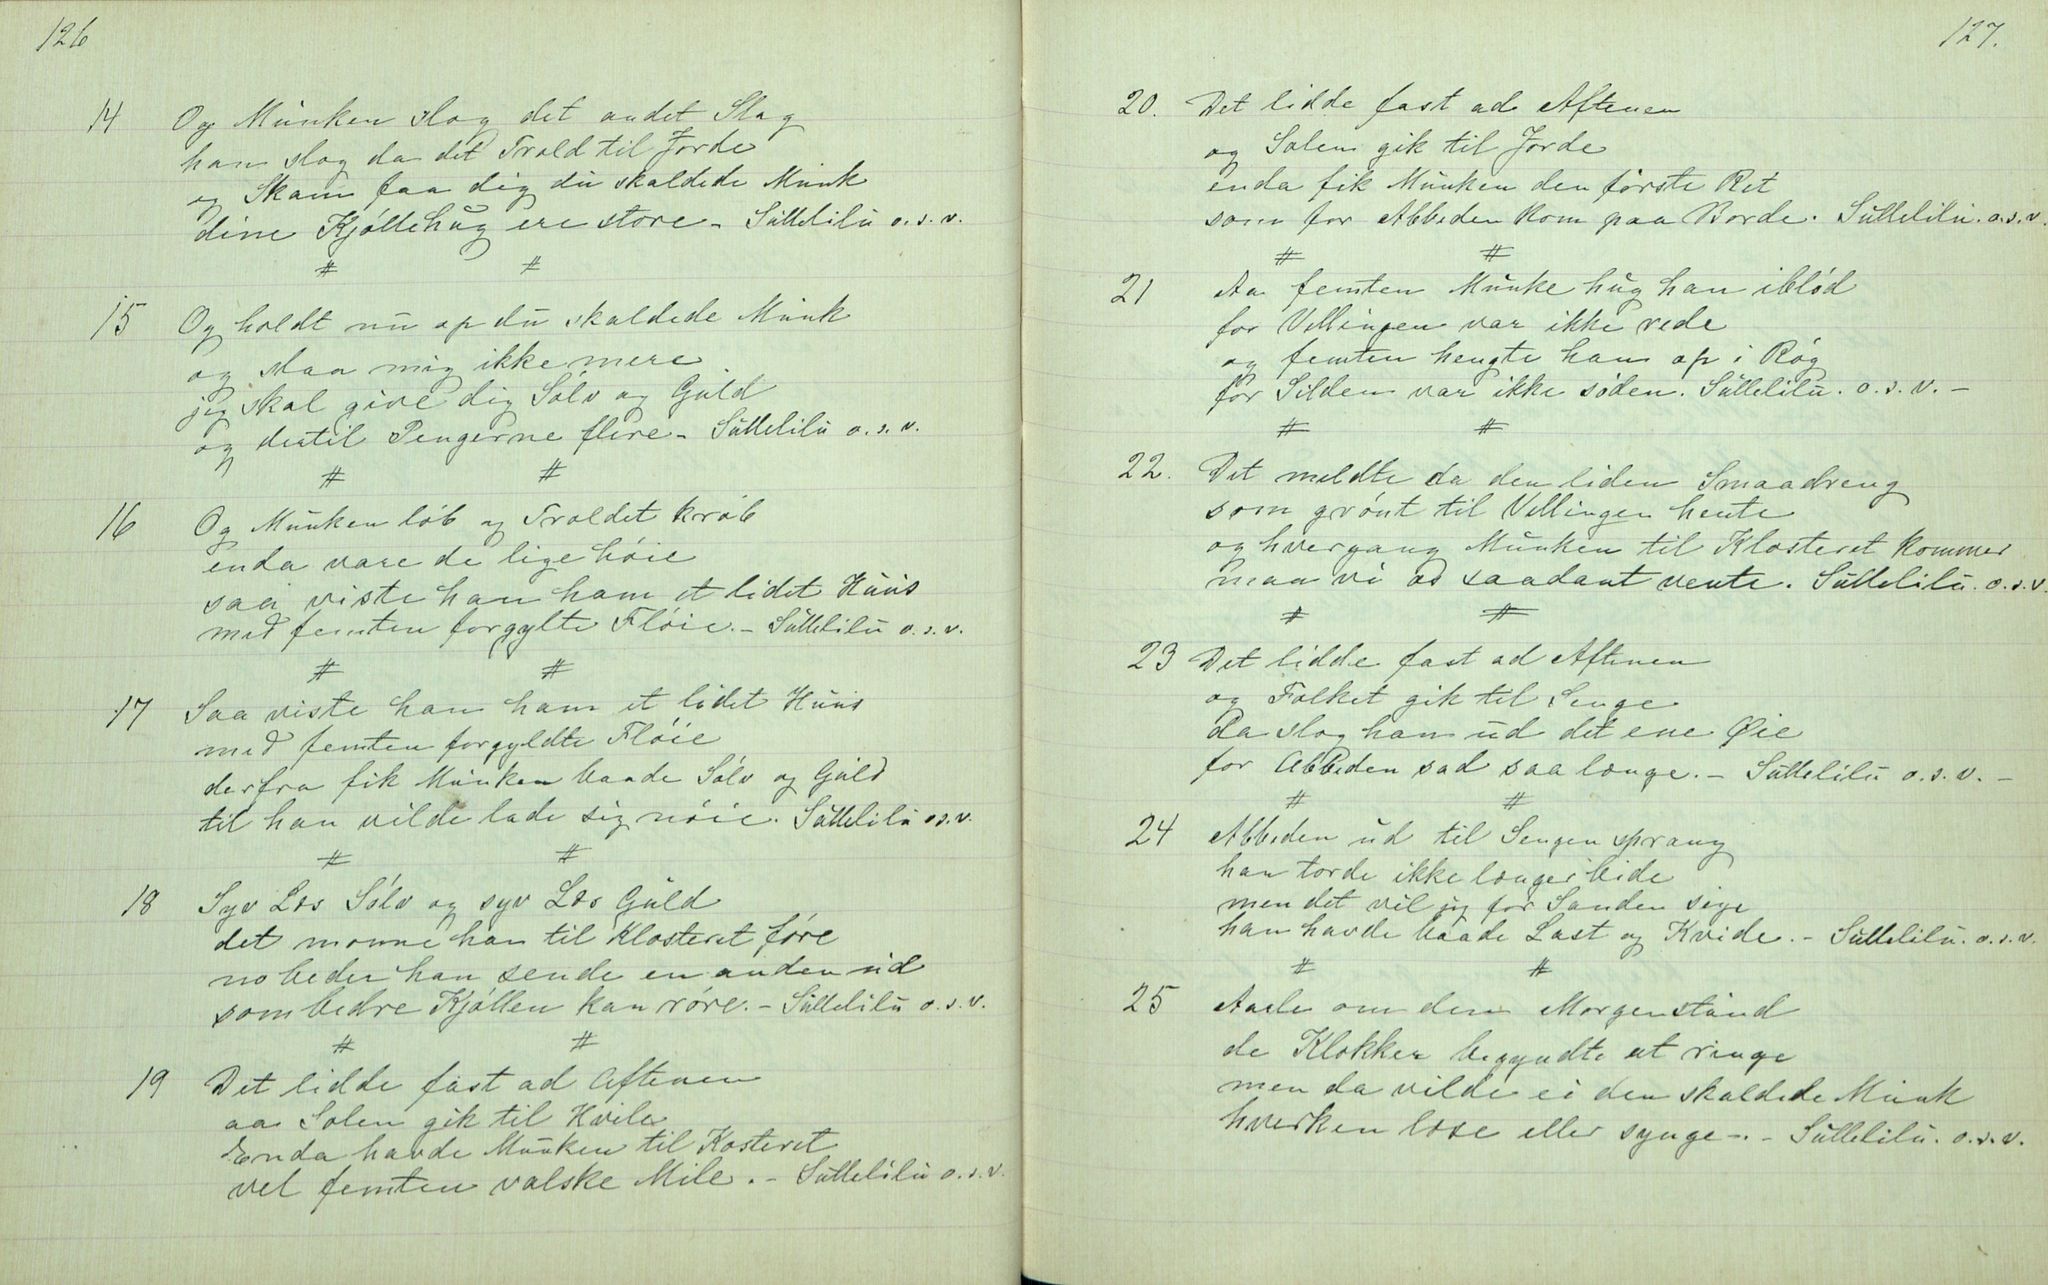 126
14 Og Munken slog det andet Slag
han slog da det Trold til Jorde
og Skam faa dig du skaldede Munk
dine Kjøllehug ere store - Sullelilu o.s.v.
# #
15 Og holdt nu op du skaldede Munk
og slaa mig ikke mere
jeg skal give dig Sølv og Guld
og dertil Pengerne flere - Sullelilu o.s.v.
# #
16 Og Munken løb og Troldet krøb
enda vare de lige høie
saa viste han ham et lidet Huus
med femten forgylte Fløie. - Sullelilu o.s.v.
# #
17 Saa viste han ham et lidet Huus
med femten forgyldte Fløie
derfra fik Munken baade Sølv og Guld
til han vilde lade sig nøie. Sullelilu o.s.v.
# #
18 Syv Læs Sølv og syv Læs Guld
det monne han til Klosteret føre
no beder han sende en anden ud
som bedre Kjøllen kan røre. - Sullelilu o.s.v.
# #
19 Det lidde fast ad Aftenen
aa Solen gik til Hvile
Enda havde Munken til Kosteret
vel femten valske Mile. - Sullelilu o.s.v.
127.
20. Det lidde fast ad Aftenen
og Solen gik til Jorde
enda fik Munken den første Ret
som for Abbeden kom paa Borde. Sullelilu. o.s.v.
# #
21 Aa femten Munke hug han iblød
for Vellingen var ikke rede
og femten hengte han op i Røg
for Silden var ikke søden. Sullelilu. o.s.v. -
# #
22. Det meldte da den liden Smaadreng
som grønt til Vellingen hente
og hvergang Munken til Klosteret kommer
maa vi os saadant vente. Sullelilu. o.s.v.
# #
23 Det lidde fast ad Aftenen
og Folket gik til Senge
da slog han ud det ene Øie
for Abbeden sad saa længe. - Sullelilu o.s.v. -
# #
24 Abbeden ud til Sengen sprang
han torde ikke længer bide
men det vil jeg for Sanden sige
han havde baade Last og Kvide. - Sullelilu. o.s.v.
# #
25 Aarle om den Morgenstund
de Klokker begyndte at ringe
men da vilde ei den skaldede Munk
hverken læse eller synge -. - Sullelilu. o.s.v.